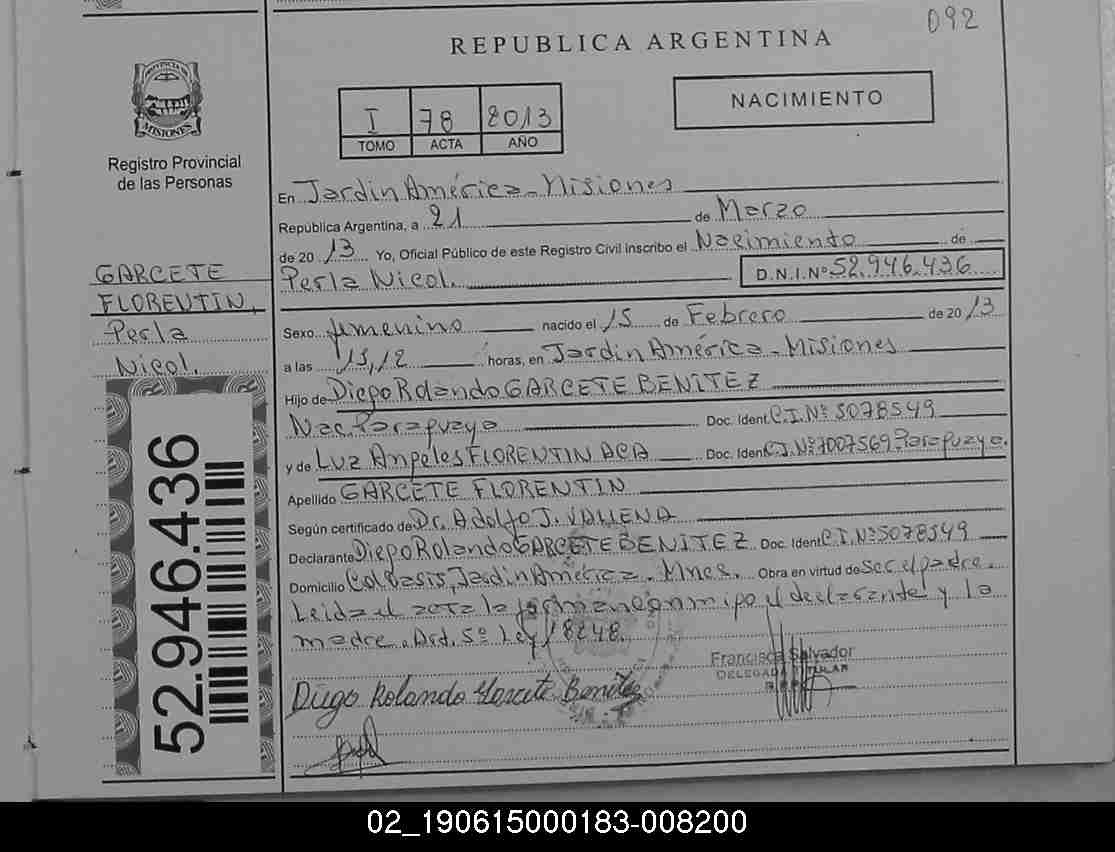 092
REPUBLICA ARGENTINA
PROVINCIA DE MISIONES
Registro Provincial
de las Personas
I 78 2013
TOMO ACTA AÑO
NACIMIENTO
En Jardin América - Misiones
República Argentina, a 21 de Marzo
de 2013 Yo, Oficial Público de este Registro Civil inscribo el Nacimiento de
Perla Nicol. D.N.I.Nº 52.946.436
GARCETE
FLORENTIN,
Perla
Nicol.
52.946.436
Sexo femenino nacido el 15 de Febrero de 2013
a las 13,12 horas, en Jardin América - Misiones
Hijo de Diego Rolando GARCETE BENITEZ
Nac. Paraguaya Doc. Ident. C.I. Nº 5078549
y de Luz Angeles FLORENTIN ACA Doc. Iden C.I. Nº 7007569 Paraguaya.
Apellido GARCETE FLORENTIN
Según certificado de Dr. Adolfo J.
Declarante Diego Rolando GARCETE BENITEZ Doc. Ident C.I. Nº 5078549
Domicilio Jardin América. Mnes. Obra en virtud de ser el padre.
Leida el acta la firman conmigo el declarante y la
madre. Art. 5º Ley 18248.
Francisca Salvador
DELEGADA TITULAR
Diego Rolando Garcete Benitez
02_190615000183-008200